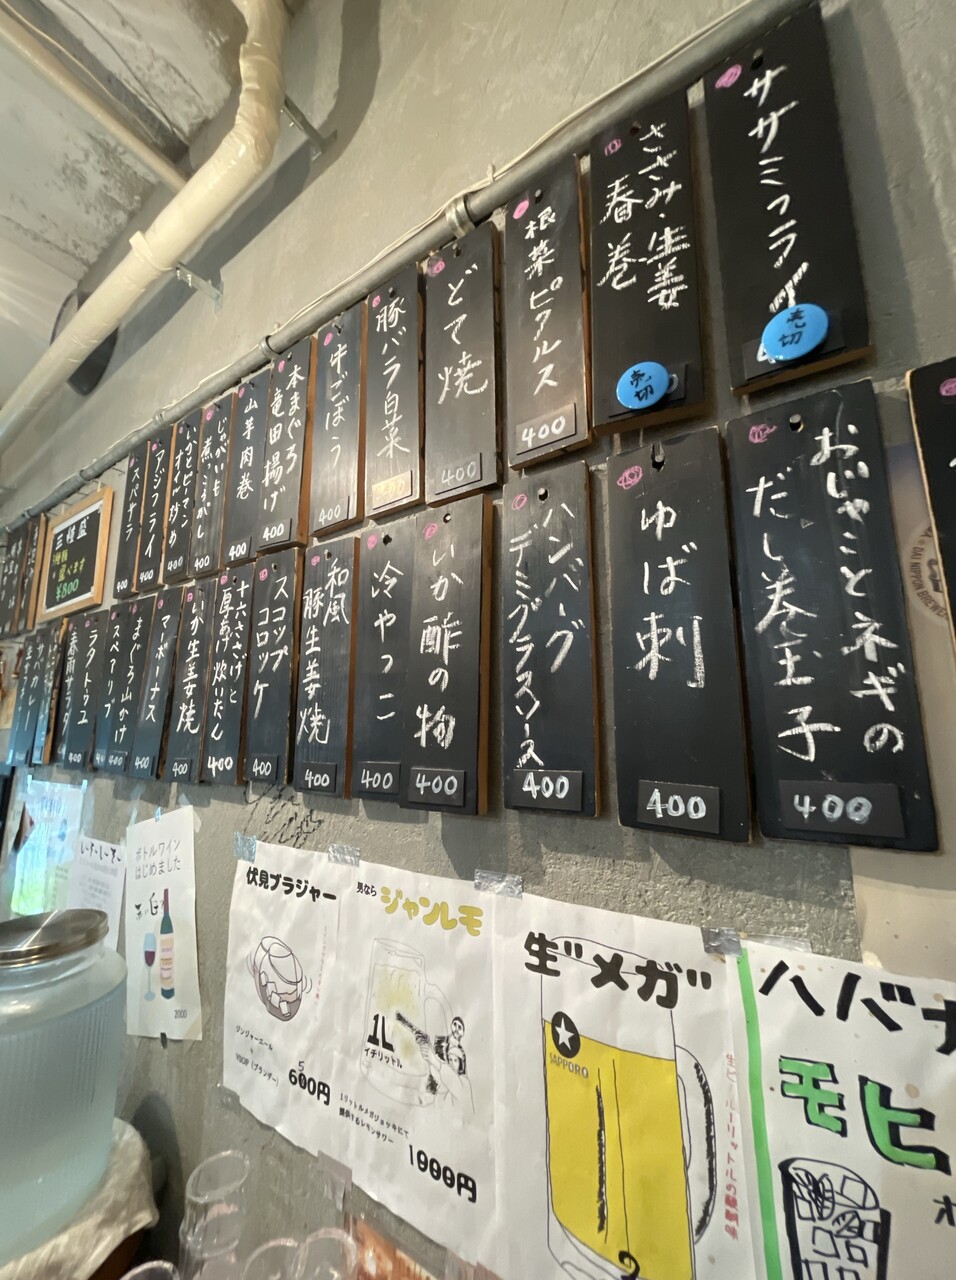 ササミフライ
売切
ささみ・生姜
春巻
売切
根菜ピクルス
400
どて焼
400
豚バラ白菜
牛ごぼう
400
本まぐろ
竜田揚げ
400
山芋肉巻
400
じゃがいも
煮っころがし
400
いかとピーマン
オイル炒め
400
アジフライ
400
スパサラ
400
おじゃことネギの
だし巻玉子
400
ゆば刺
400
ハンバーグ
デミグラスソース
400
いか酢の物
400
冷やっこ
400
和風
豚生姜焼
400
スコップ
コロッケ
400
十六ささげと
厚あげ炊いたん
400
いか生姜焼
400
マーボーナス
400
まぐろ山かけ
400
スペアーリブ
400
ラタトゥユ
春雨サラダ
400
三種盛
選べます
¥800
ボトルワイン
はじめました
2000
伏見ブラジャー
ジンジャーエール
+
VSOP(ブランデー)
600円
5
男なら
ジャンレモ
1L
イチリットル
1リットルメガジョッキにて
提供するレモンサワー
1000円
生"メガ"
SAPPORO
生ビール1リットルの醍醐味
ハバナ
モヒ
DAI NIPPON BREWE